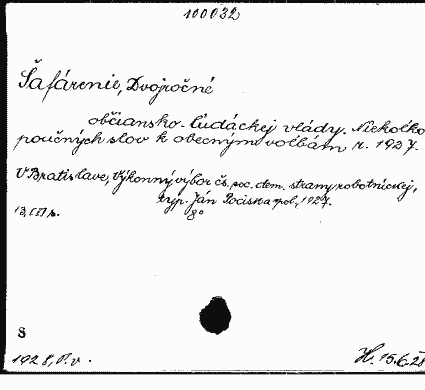 100032
Šafárenie, Dvojročné
občiansko-ľudáckej vlády. Niekoľko
poučných slov k obecným voľbám r. 1927.
V Bratislave, Výkonný výbor čs. soc. dem. strany robotníckej,
typ. Ján Pocisk a spol., 1927.
13, [II] p. 8°
8
1928, P. v. H. 15.6.